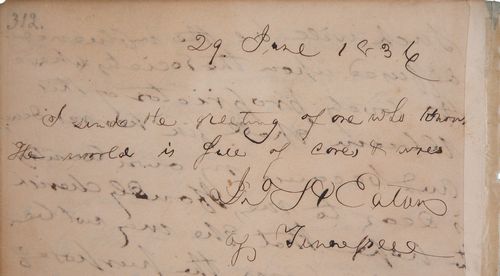 312.
29 June 1836
I send the greeting of one who knows
The world is full of cares & woes
Jno H Eaton
of Tennessee